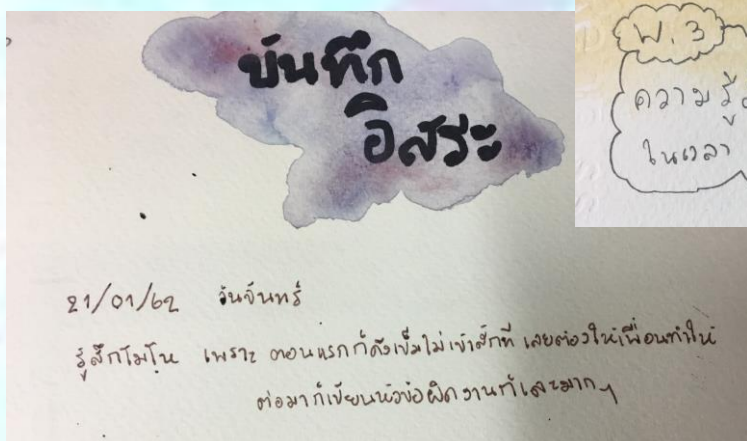 บันทึก
อิสระ
พ.3
ความรู้
ในเวลา
21/01/62 วันจันทร์
รู้สึกโมโห เพราะ ตอนแรกก็ดึงเข็มไม่เข้าสักที เลยต้องให้เพื่อนทำให้
ต่อมาก็เขียนหัวข้อผิด งานก็เละมากๆ